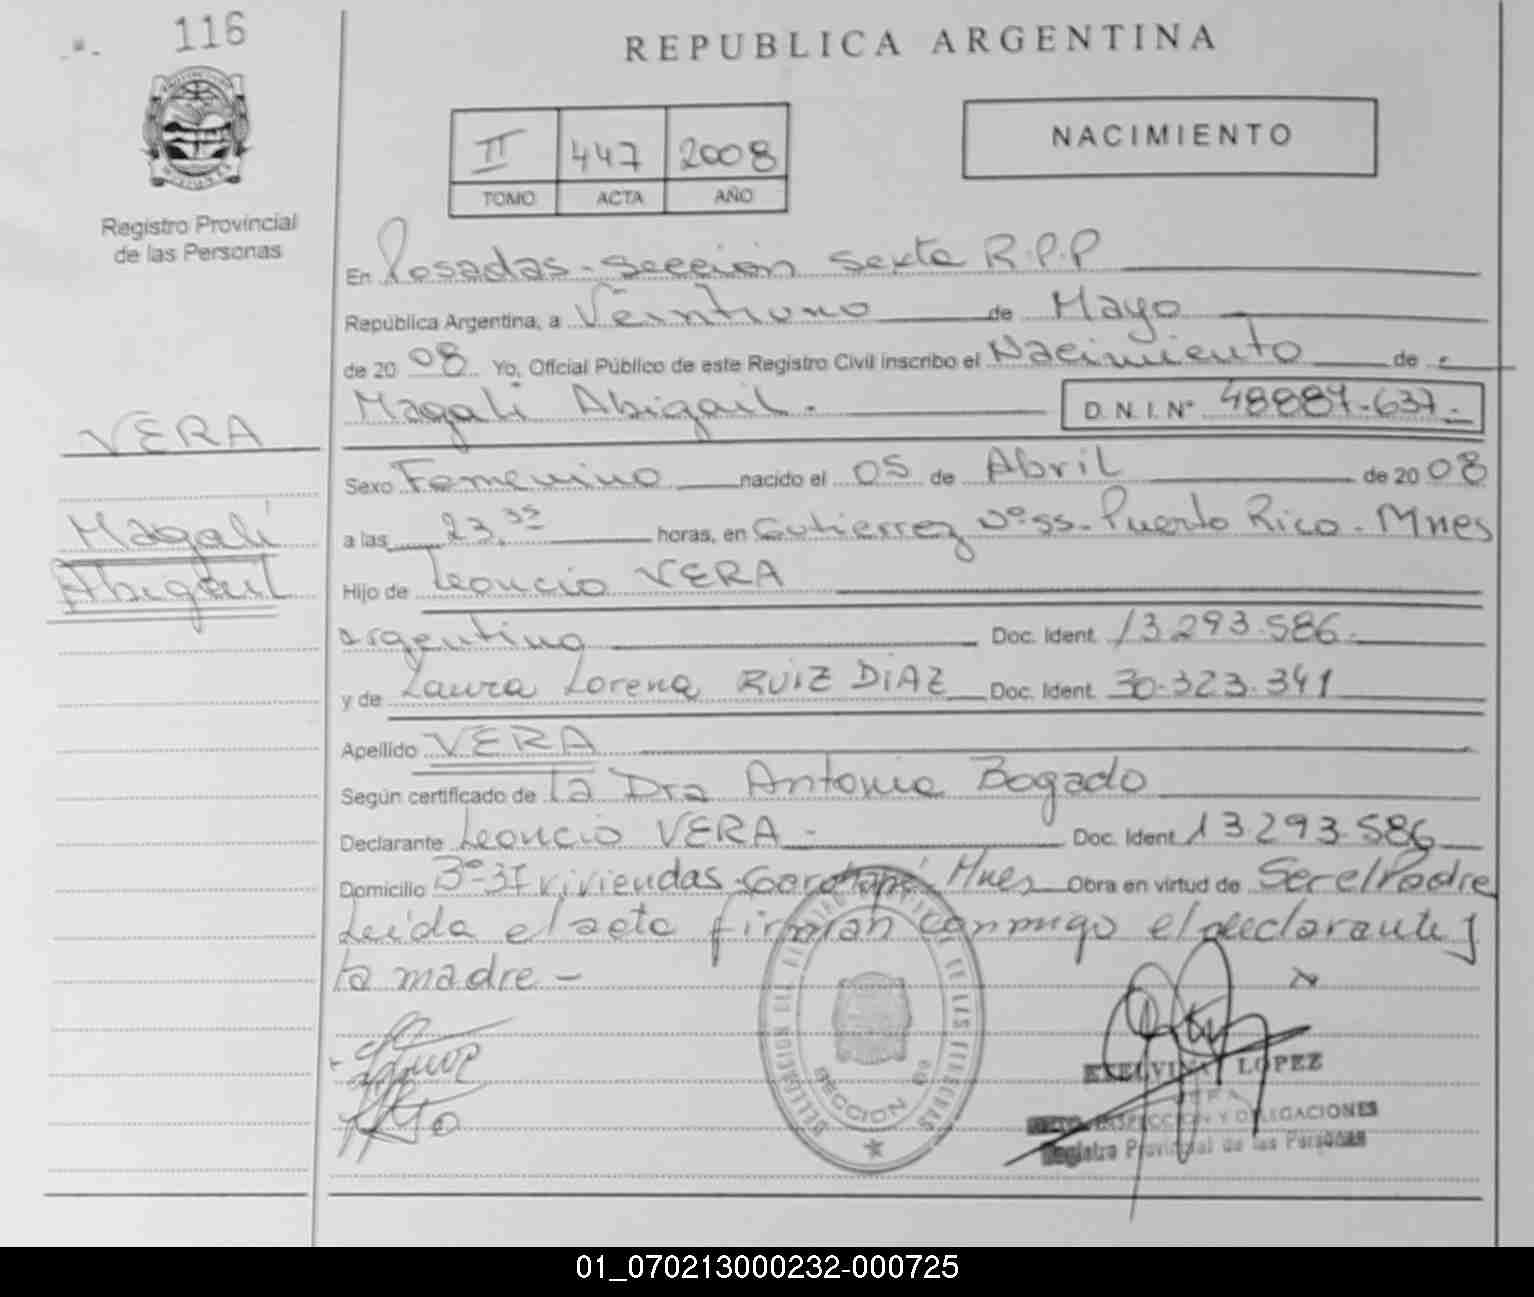 116
REPUBLICA ARGENTINA
II 447 2008
TOMO ACTA AÑO
NACIMIENTO
Registro Provincial
de las Personas
En Posadas - Sección Sexta R.P.P
República Argentina, a Veintiuno de Mayo
de 20 08 Yo, Oficial Público de este Registro Civil inscribo el Nacimiento de
Magali Abigail.
D.N.I.N° 48887.637.-
VERA
Magalí
Abigail
Sexo Femenino nacido el 05 de Abril de 20 08
a las 23,35 horas, en Gutierrez N°55 - Puerto Rico - Mnes
Hijo de Leoncio VERA
argentino Doc. Ident. 13.293.586.
y de Laura Lorena RUIZ DIAZ Doc. Ident. 30.323.341
Apellido VERA
Según certificado de la Dra Antonia Bogado
Declarante Leoncio VERA - Doc. Ident. 13.293.586
Domicilio viviendas Mnes Obra en virtud de Ser el Padre
Leida el acta firman conmigo el declarante y
la madre -
SECCION
LOPEZ
INSPECCION Y DELEGACIONES
Registro Provincial de las Personas
01_070213000232-000725